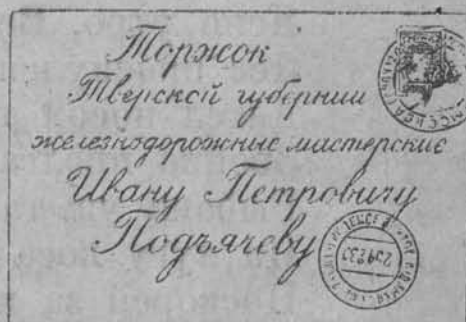 Торжок
Тверской губернии
железнодорожные мастерские
Ивану Петровичу
Подъячеву